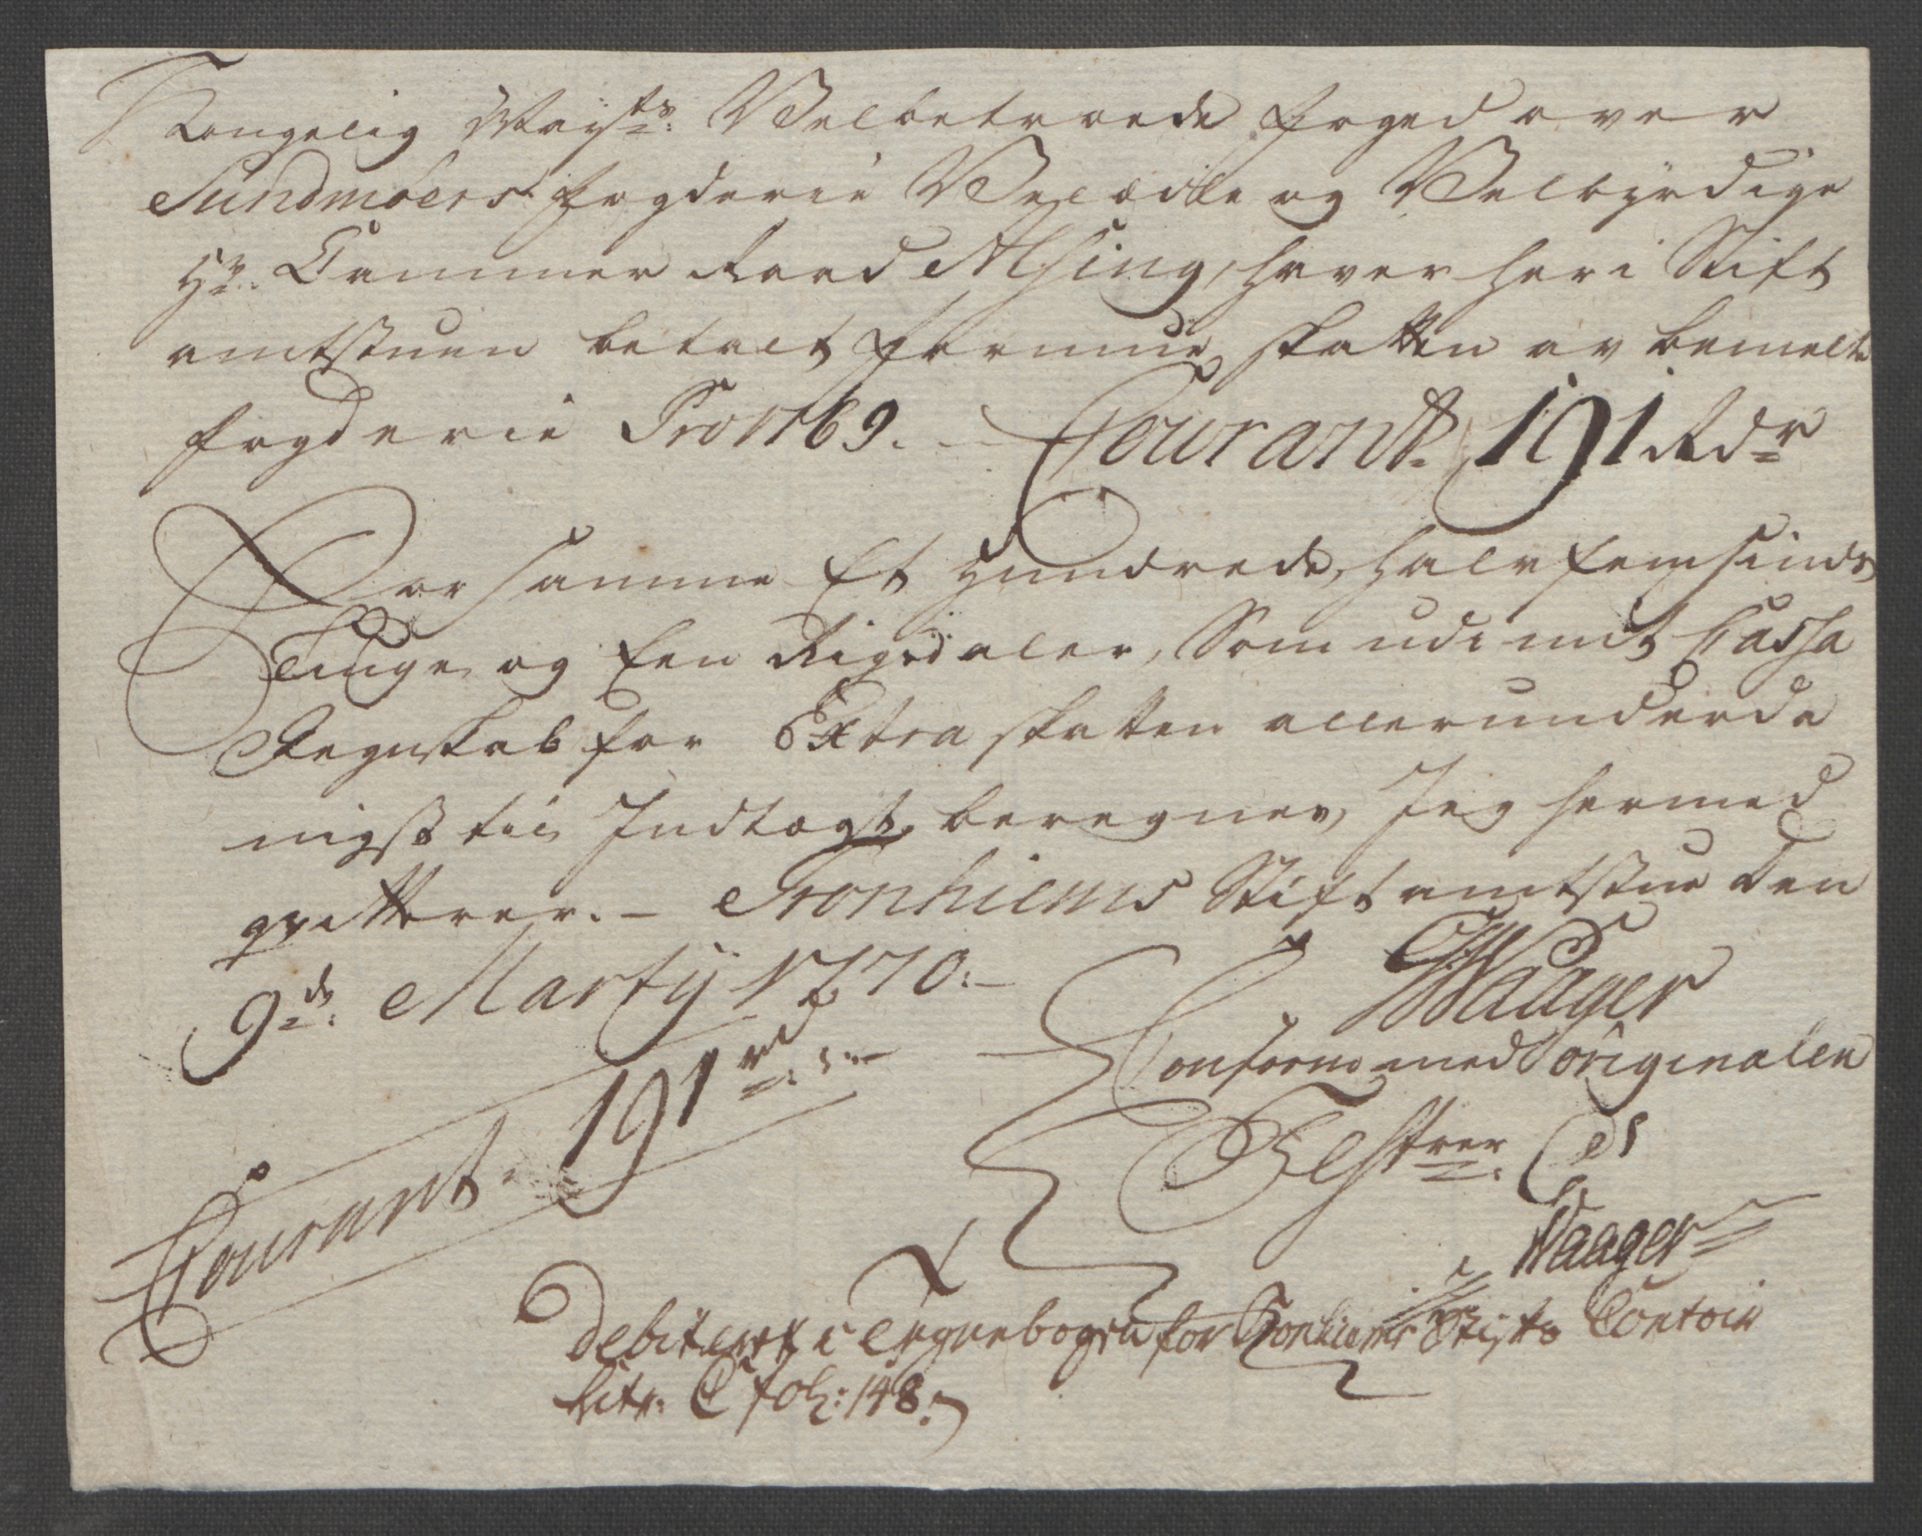 Kongelig Mayts: Velbetroede foged over
Sundmöers fogderie Velædle og Velbyrdige
Hr. Cammer Raad Alsing, haver her i Stift
amtstuen betalt formue skatten av bemelte
fogderie Pro 1769. - Courant. 191 Rdr
Er samme Et Hundrede, halvfemsinds
Tiuge og Een Rigsdaler, som udi mit Cassa
Regnskab for Extra skatten allerunderda
nigst til Indtægt beregnes, Jeg hermed
qvitterer. - Tronhiems Stiftamtstue den
9de: Marty 1770. -
Waager
Conform med Originalen
Testrer
Courant. 191 rd:
Waager
Debiteret i Tegnebogen for Tronhiems Stifts Contoir
Litr. C fol: 148.